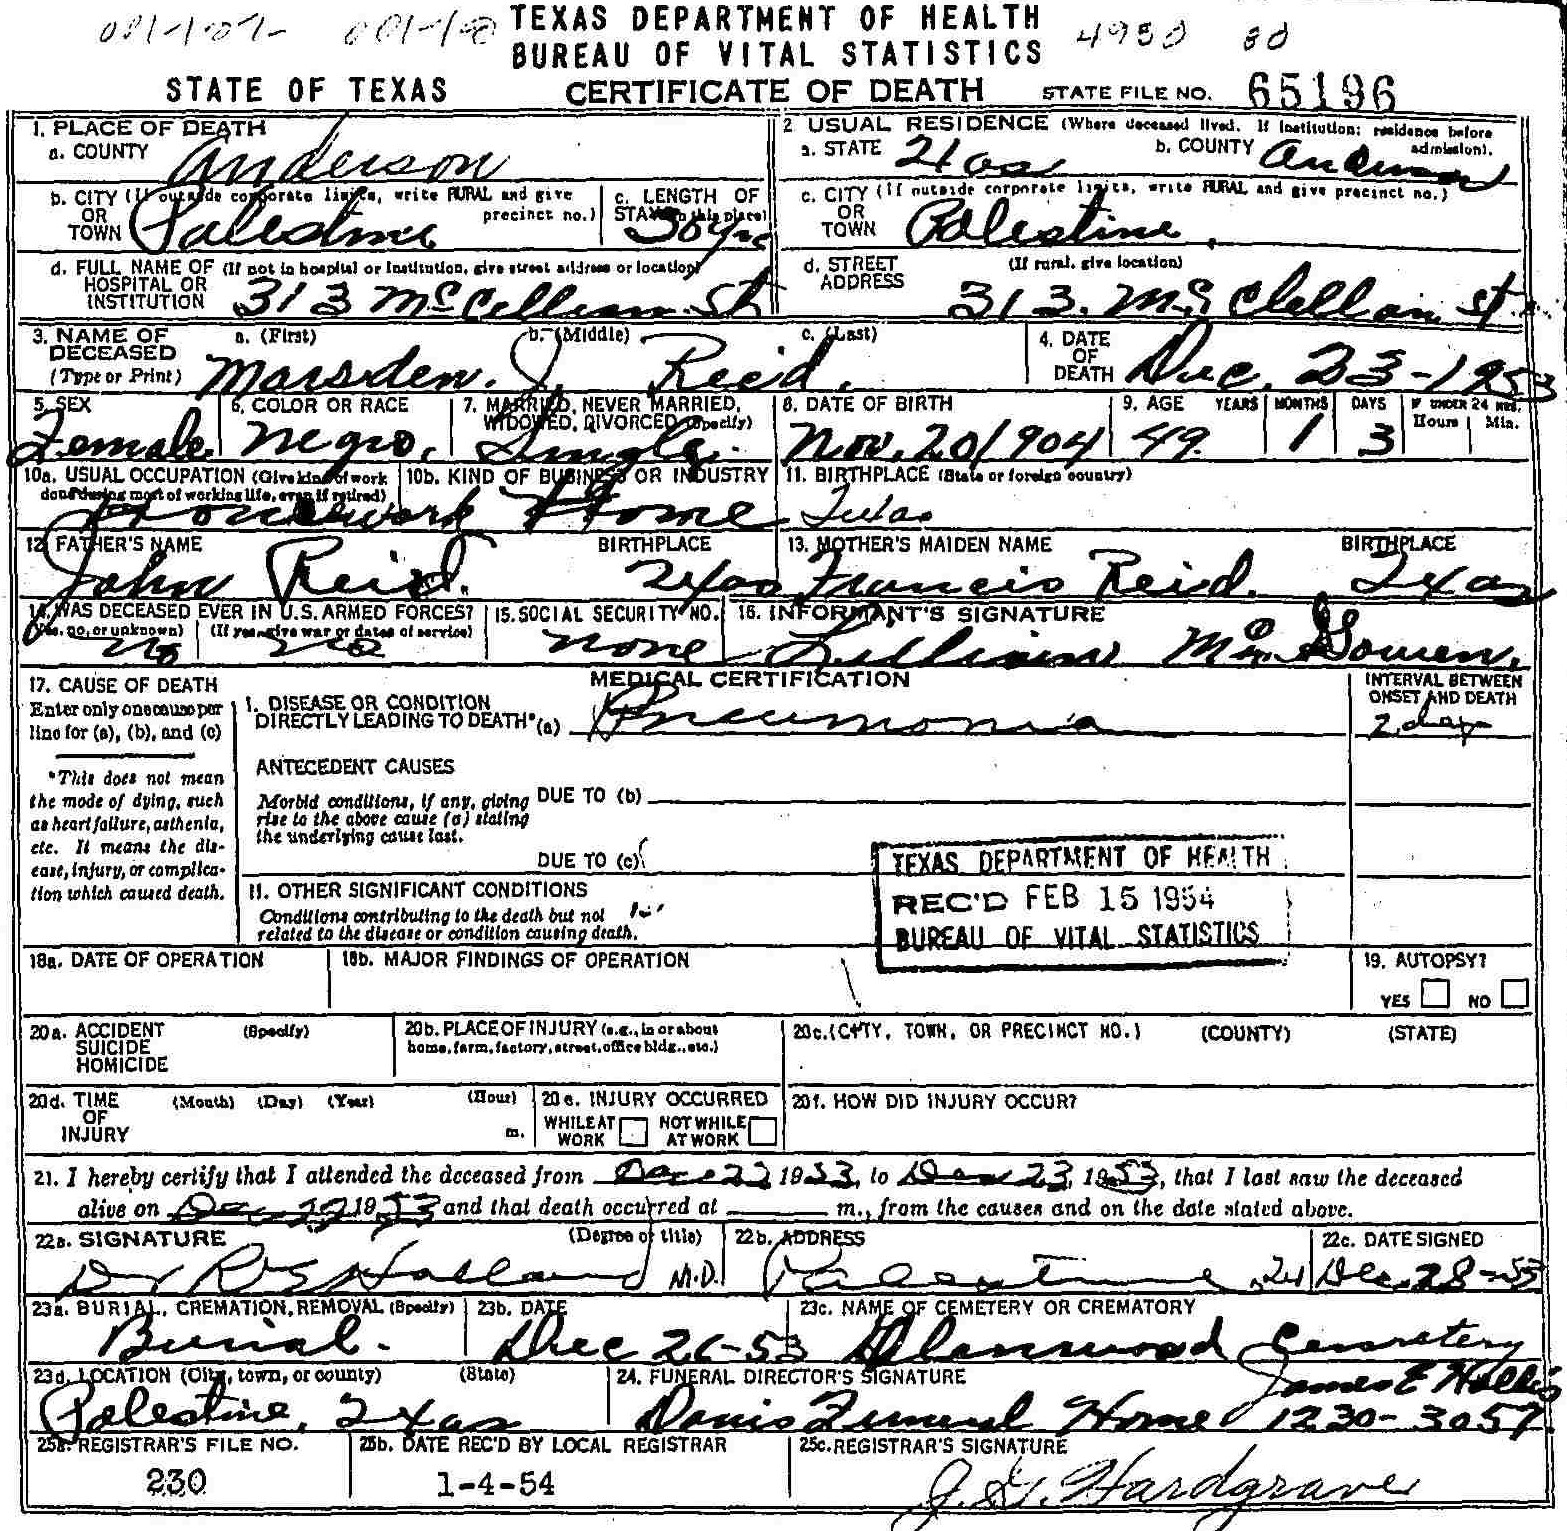 TEXAS DEPARTMENT OF HEALTH
BUREAU OF VITAL STATISTICS
4930 80
STATE OF TEXAS CERTIFICATE OF DEATH STATE FILE NO. 65196
1. PLACE OF DEATH
a. COUNTY Anderson
2 USUAL RESIDENCE (Where deceased lived. If institution: residence before admission).
a. STATE b. COUNTY Anderson
b. CITY (If outside corporate limits, write RURAL and give precinct no.)
OR
TOWN Palestine
c. LENGTH OF
STAY (in this place)
30 yrs
c. CITY (If outside corporate limits, write RURAL and give precinct no.)
OR
TOWN Palestine
d. FULL NAME OF (If not in hospital or institution, give street address or location)
HOSPITAL OR
INSTITUTION 313 St
d. STREET (If rural, give location)
ADDRESS 313. McClellan St.
3. NAME OF DECEASED (Type or Print)
a. (First) b. (Middle) c. (Last)
Marsden. J. Reid.
4. DATE OF DEATH Dec. 23-1953
5. SEX
Female
6. COLOR OR RACE
Negro.
7. MARRIED, NEVER MARRIED, WIDOWED, DIVORCED (Specify)
Single.
8. DATE OF BIRTH
Nov. 20 1904
9. AGE YEARS MONTHS DAYS IF UNDER 24 HRS. Hours Min.
49. 1 3
10a. USUAL OCCUPATION (Give kind of work done during most of working life, even if retired)
Housework
10b. KIND OF BUSINESS OR INDUSTRY
Home
11. BIRTHPLACE (State or foreign country)
Texas
12. FATHER'S NAME BIRTHPLACE
John Reid. Texas
13. MOTHER'S MAIDEN NAME BIRTHPLACE
Francis Reid. Texas
14. WAS DECEASED EVER IN U.S. ARMED FORCES?
(Yes, no, or unknown) (If yes, give war or dates of service)
No No
15. SOCIAL SECURITY NO.
None
16. INFORMANT'S SIGNATURE
MEDICAL CERTIFICATION
17. CAUSE OF DEATH
Enter only one cause per
line for (a), (b), and (c)
*This does not mean
the mode of dying, such
as heart failure, asthenia,
etc. It means the dis-
ease, injury, or complica-
tion which caused death.
I. DISEASE OR CONDITION
DIRECTLY LEADING TO DEATH* (a) Pneumonia
INTERVAL BETWEEN
ONSET AND DEATH
2 days
ANTECEDENT CAUSES
Morbid conditions, if any, giving
rise to the above cause (a) stating
the underlying cause last.
DUE TO (b)
DUE TO (c)
II. OTHER SIGNIFICANT CONDITIONS
Conditions contributing to the death but not
related to the disease or condition causing death.
TEXAS DEPARTMENT OF HEALTH
REC'D FEB 15 1954
BUREAU OF VITAL STATISTICS
18a. DATE OF OPERATION
18b. MAJOR FINDINGS OF OPERATION
19. AUTOPSY?
YES NO
20a. ACCIDENT (Specify)
SUICIDE
HOMICIDE
20b. PLACE OF INJURY (e.g., in or about
home, farm, factory, street, office bldg., etc.)
20c. (CITY, TOWN, OR PRECINCT NO.) (COUNTY) (STATE)
20d. TIME (Month) (Day) (Year) (Hour)
OF
INJURY m.
20e. INJURY OCCURRED
WHILE AT WORK NOT WHILE AT WORK
20f. HOW DID INJURY OCCUR?
21. I hereby certify that I attended the deceased from Dec 22 1953, to Dec 23, 1953, that I last saw the deceased
alive on Dec 1953 and that death occurred at m., from the causes and on the date stated above.
22a. SIGNATURE (Degree or title)
Dr Holland M.D.
22b. ADDRESS
Palestine
22c. DATE SIGNED
Dec. 28-53
23a. BURIAL, CREMATION, REMOVAL (Specify)
Burial.
23b. DATE
Dec 26-53
23c. NAME OF CEMETERY OR CREMATORY
Cemetery
23d. LOCATION (City, town, or county) (State)
Palestine, Texas
24. FUNERAL DIRECTOR'S SIGNATURE
James E Hollis
Davis Funeral Home 1230-3057
25a. REGISTRAR'S FILE NO.
230
25b. DATE REC'D BY LOCAL REGISTRAR
1-4-54
25c. REGISTRAR'S SIGNATURE
Hardgrave